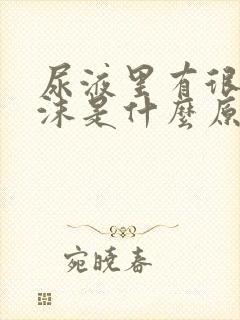 尿液里有很
沫是什麼原
宛曉春